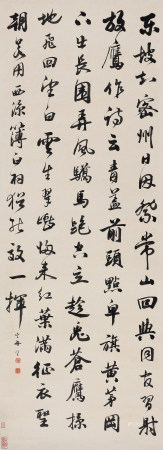 東坡知密州日因祭常山回與同友習射
放鷹作詩云青蓋前頭點皁旗黃茅岡
下出長圍弄風驕馬跑空立趁兔蒼鷹掠
地飛回望白雲生翠巘歸來紅葉滿征衣聖
朝若用西涼簿白羽猶能效一揮